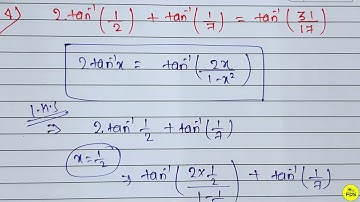 4) 2 tan⁻¹(1/2) + tan⁻¹(1/7) = tan⁻¹(31/17)
2 tan⁻¹x = tan⁻¹(2x/1-x²)
L.H.S
⇒ 2 tan⁻¹ 1/2 + tan⁻¹(1/7)
x = 1/2
⇒ tan⁻¹(2×1/2 / 1-1) + tan⁻¹(1/7)
PDS